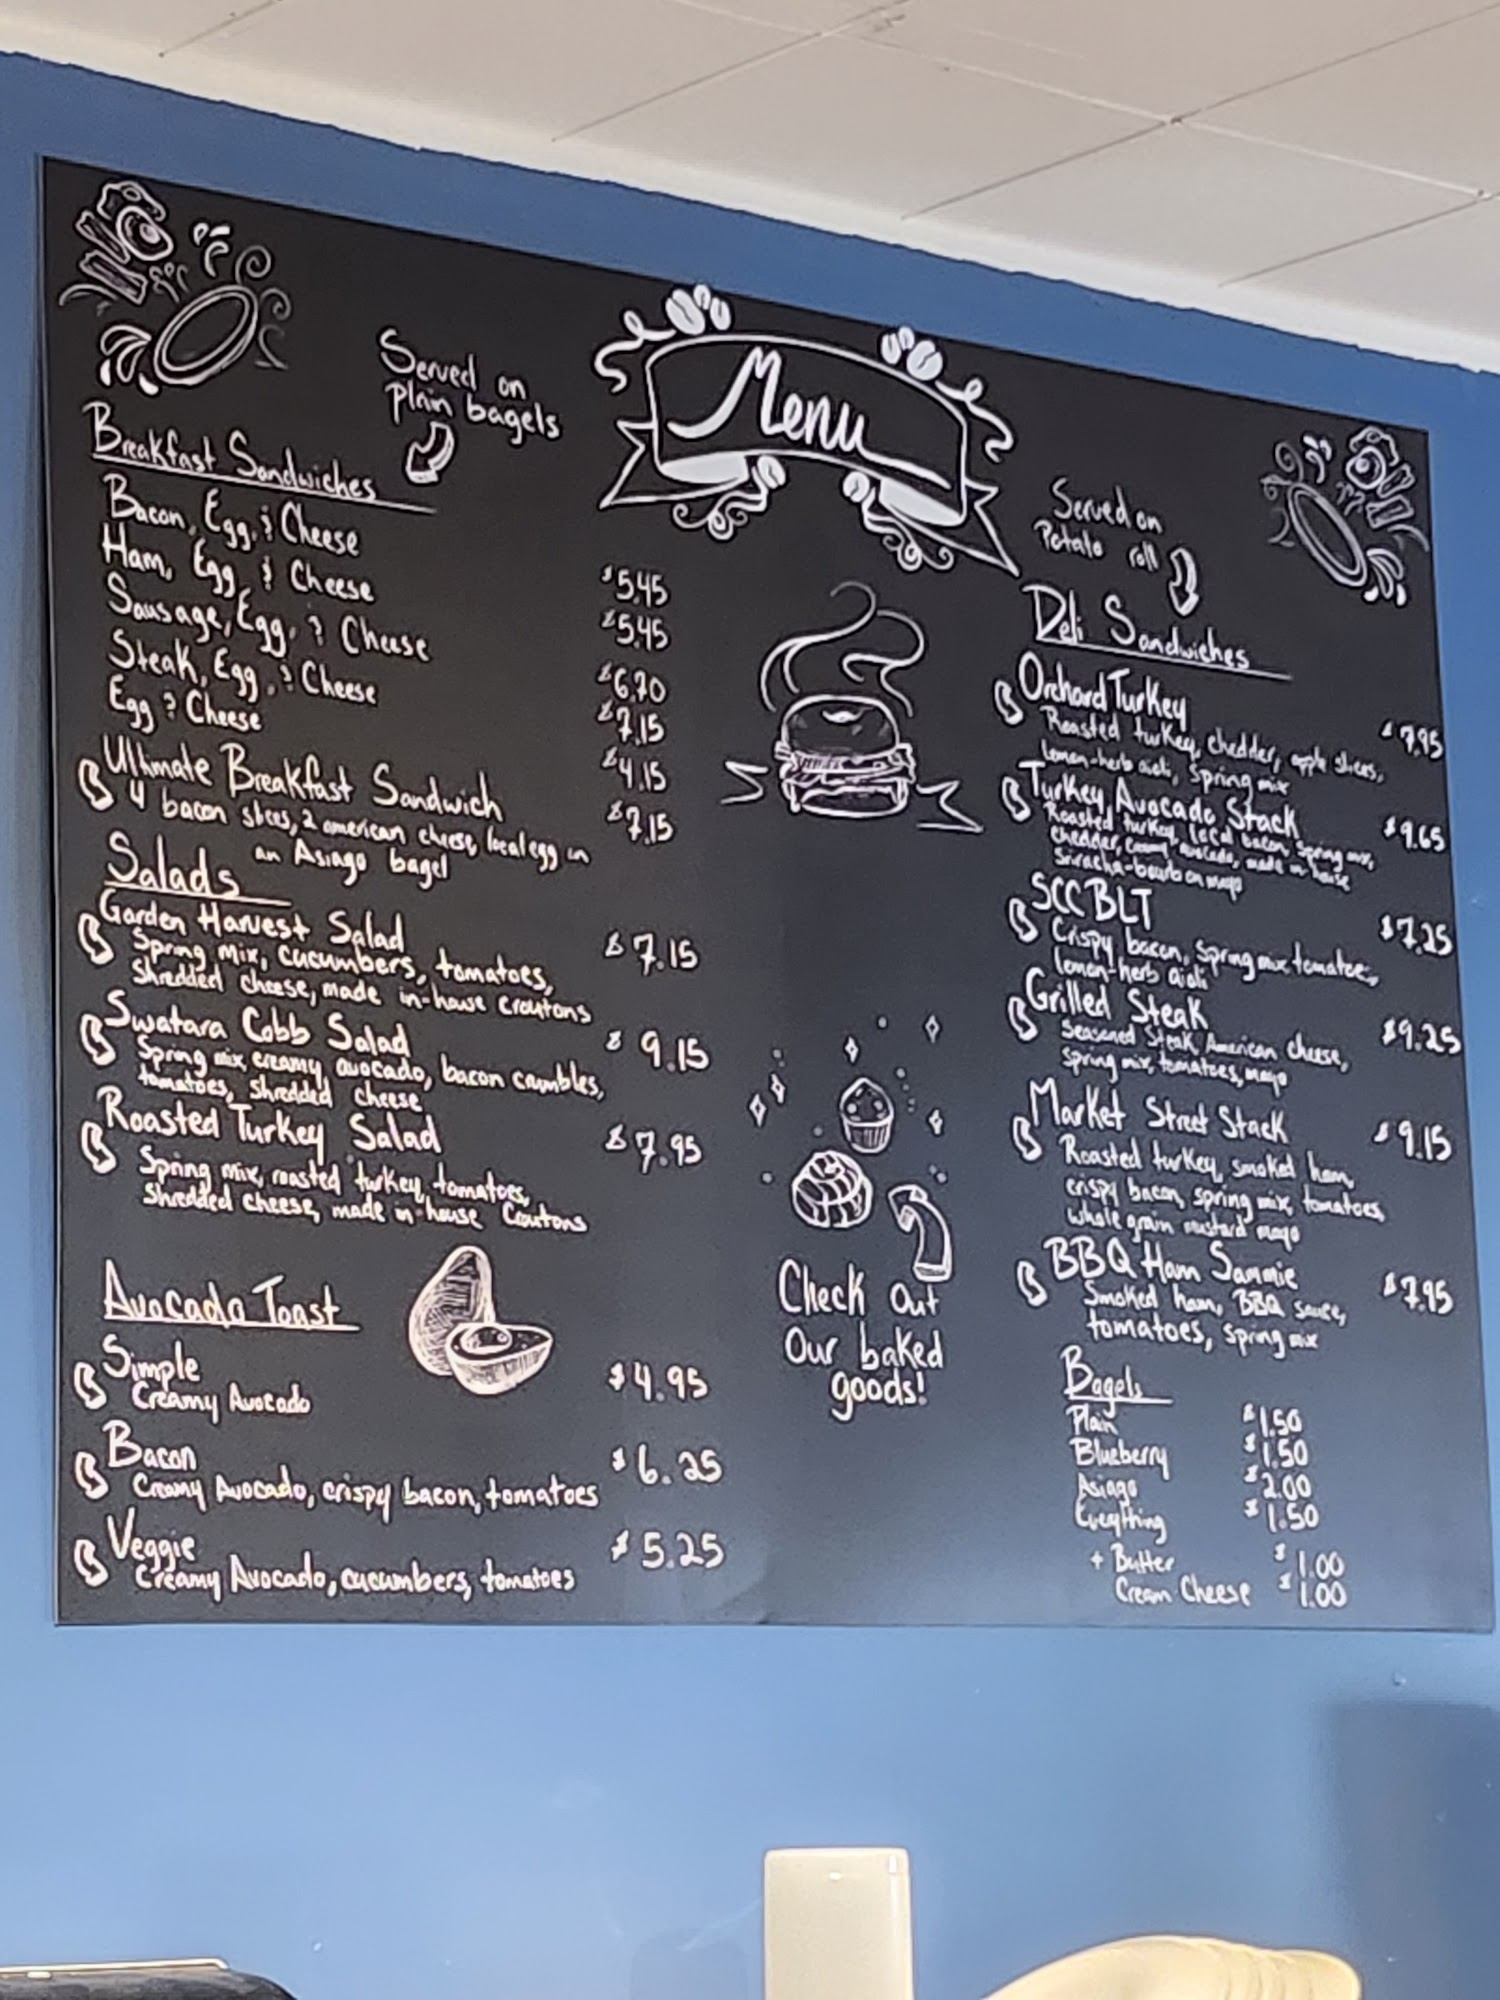 Menu
Served on
Plain bagels
Breakfast Sandwiches
Bacon, Egg, & Cheese $5.45
Ham, Egg, & Cheese $5.45
Sausage, Egg, & Cheese $6.70
Steak, Egg, & Cheese $7.15
Egg & Cheese $4.15
Ultimate Breakfast Sandwich $7.15
4 bacon slices, 2 american cheese, local egg on
an Asiago bagel
Salads
Garden Harvest Salad $7.15
Spring mix, cucumbers, tomatoes,
Shredded cheese, made in-house croutons
Swatara Cobb Salad $9.15
Spring mix, creamy avocado, bacon crumbles,
tomatoes, shredded cheese
Roasted Turkey Salad $7.95
Spring mix, roasted turkey, tomatoes,
Shredded cheese, made in-house Croutons
Avocado Toast
Simple $4.95
Creamy Avocado
Bacon $6.25
Creamy Avocado, crispy bacon, tomatoes
Veggie $5.25
Creamy Avocado, cucumbers, tomatoes
Check Out
Our baked
goods!
Served on
Potato roll
Deli Sandwiches
Orchard Turkey $7.95
Roasted turkey, chedder, apple slices,
lemon-herb aioli, Spring mix
Turkey Avocado Stack $9.65
Roasted turkey, local bacon, Spring mix,
chedder, creamy avocado, made in-house
Sriracha-bourbon mayo
SCC BLT $7.25
Crispy bacon, Spring mix, tomatoes,
lemon-herb aioli
Grilled Steak $9.25
Seasoned Steak, American cheese,
Spring mix, tomatoes, mayo
Market Street Stack $9.15
Roasted turkey, smoked ham,
crispy bacon, spring mix, tomatoes,
whole grain mustard mayo
BBQ Ham Sammie $7.95
Smoked ham, BBQ sauce,
tomatoes, Spring mix
Bagels
Plain $1.50
Blueberry $1.50
Asiago $2.00
Everything $1.50
+ Butter $1.00
Cream Cheese $1.00